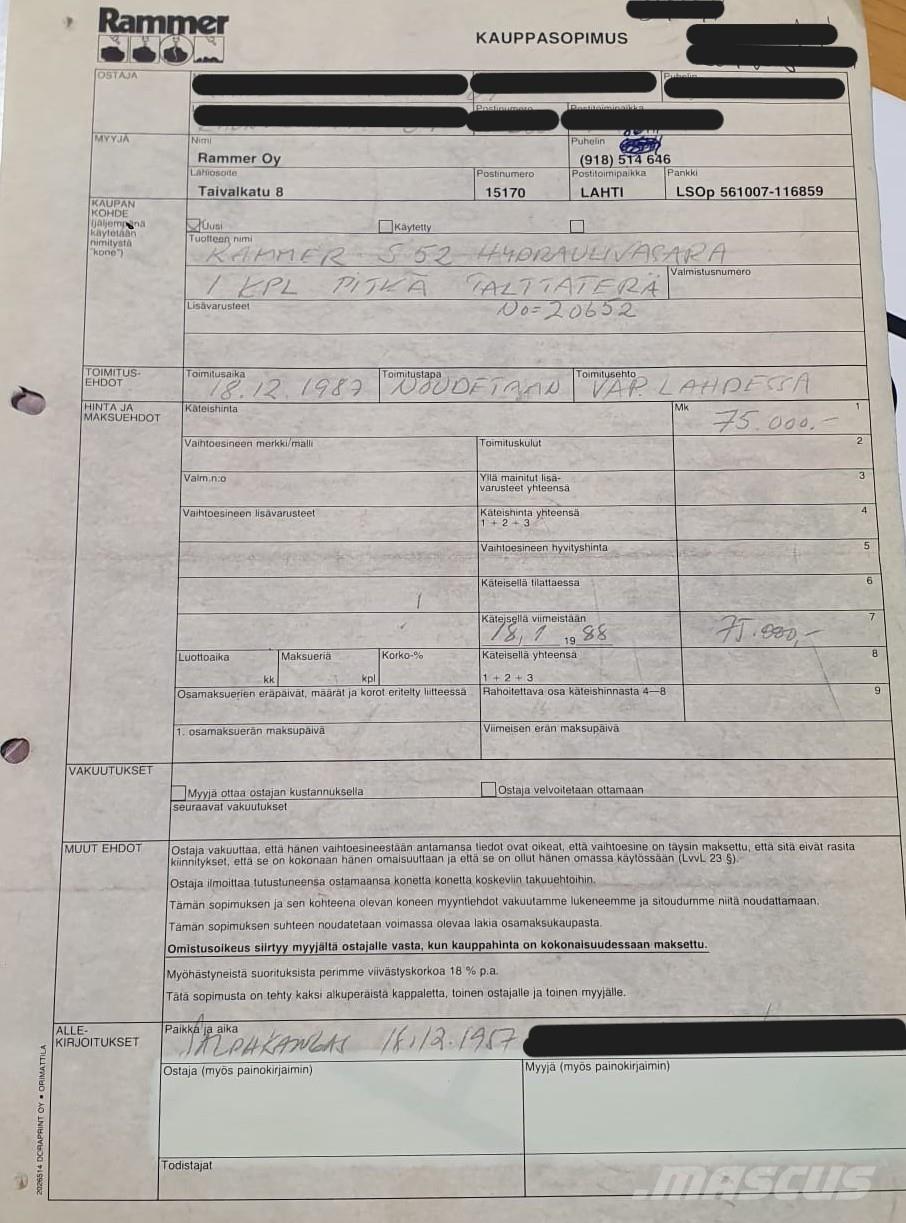 Rammer
KAUPPASOPIMUS
OSTAJA
Puhelin
Postinumero
Postitoimipaikka
MYYJÄ
Nimi
Puhelin
Rammer Oy
(918) 514 646
Lähiosoite
Postinumero
Postitoimipaikka
Pankki
Taivalkatu 8
15170
LAHTI
LSOp 561007-116859
KAUPAN
KOHDE
(jäljempänä
käytetään
nimitystä
"kone")
Uusi
Käytetty
Tuotteen nimi
RAMMER S 52 HYDRAULIVASARA
Valmistusnumero
1 KPL PITKÄ TALTTATERÄ
Lisävarusteet
No=20652
TOIMITUS-
EHDOT
Toimitusaika
Toimitustapa
Toimitusehto
18.12.1987
NOUDETAAN
VAP. LAHDESSA
HINTA JA
MAKSUEHDOT
Käteishinta
Mk
1
75.000,-
Vaihtoesineen merkki/malli
Toimituskulut
2
Valm.n:o
Yllä mainitut lisä-
varusteet yhteensä
3
Vaihtoesineen lisävarusteet
Käteishinta yhteensä
1 + 2 + 3
4
Vaihtoesineen hyvityshinta
5
Käteisellä tilattaessa
6
Käteisellä viimeistään
7
18,1 1988
75.000,-
Luottoaika
kk
Maksueriä
kpl
Korko-%
Käteisellä yhteensä
1 + 2 + 3
8
Osamaksuerien eräpäivät, määrät ja korot eritelty liitteessä
Rahoitettava osa käteishinnasta 4—8
9
1. osamaksuerän maksupäivä
Viimeisen erän maksupäivä
VAKUUTUKSET
Myyjä ottaa ostajan kustannuksella
Ostaja velvoitetaan ottamaan
seuraavat vakuutukset
MUUT EHDOT
Ostaja vakuuttaa, että hänen vaihtoesineestään antamansa tiedot ovat oikeat, että vaihtoesine on täysin maksettu, että sitä eivät rasita
kiinnitykset, että se on kokonaan hänen omaisuuttaan ja että se on ollut hänen omassa käytössään (LvvL 23 §).
Ostaja ilmoittaa tutustuneensa ostamaansa konetta konetta koskeviin takuuehtoihin.
Tämän sopimuksen ja sen kohteena olevan koneen myyntiehdot vakuutamme lukeneemme ja sitoudumme niitä noudattamaan.
Tämän sopimuksen suhteen noudatetaan voimassa olevaa lakia osamaksukaupasta.
Omistusoikeus siirtyy myyjältä ostajalle vasta, kun kauppahinta on kokonaisuudessaan maksettu.
Myöhästyneistä suorituksista perimme viivästyskorkoa 18 % p.a.
Tätä sopimusta on tehty kaksi alkuperäistä kappaletta, toinen ostajalle ja toinen myyjälle.
ALLE-
KIRJOITUKSET
Paikka ja aika
JALPAKANGAS 18.12.1987
Ostaja (myös painokirjaimin)
Myyjä (myös painokirjaimin)
Todistajat
2026514 DORAPRINT OY ● ORIMATTILA
MASCUS